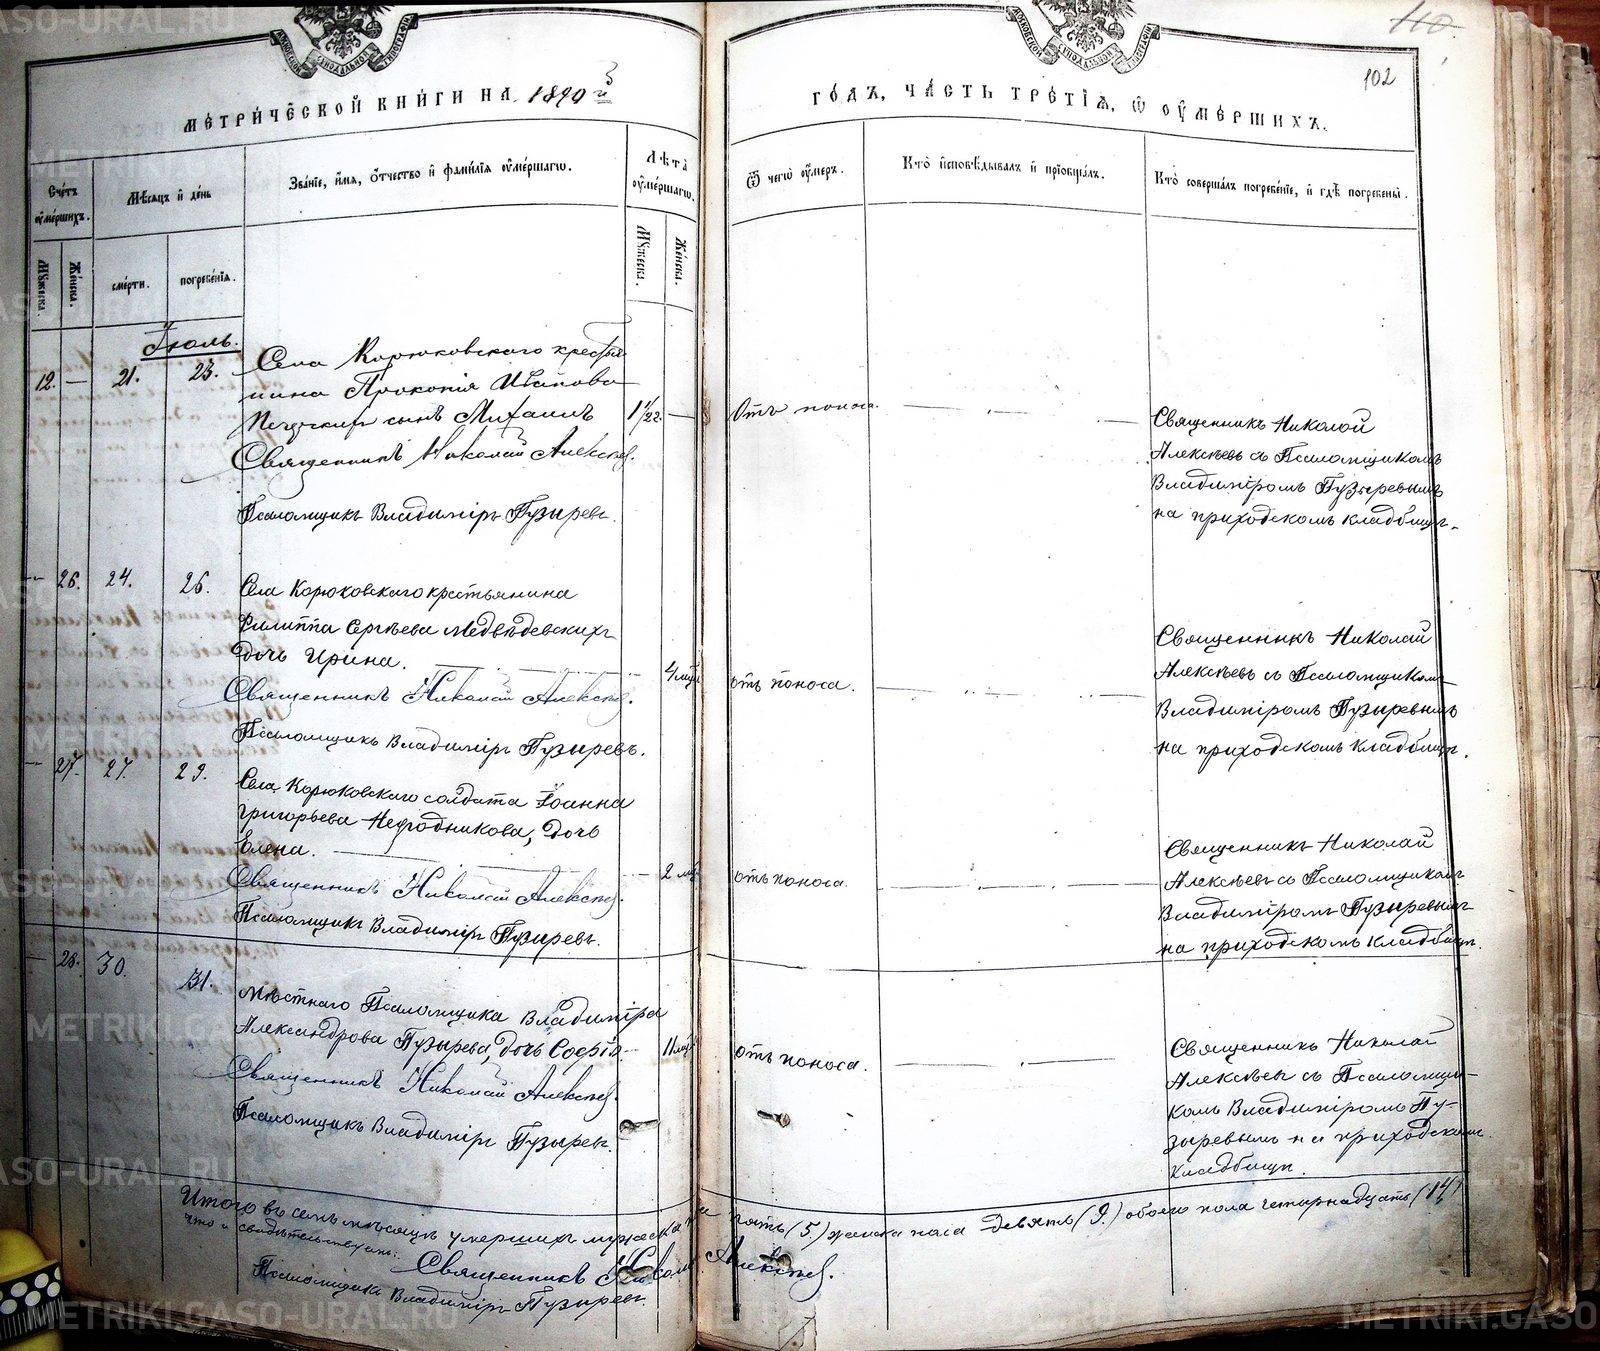 110.
102
МЕТРИЧЕСКОЙ КНИГИ НА 1890й
ГОДЪ, ЧАСТЬ ТРЕТІЯ, Ѽ ОУМЕРШИХЪ.
Счетъ оумершихъ.
Мѣсяцъ и день
Званіе, имя, отчество и фамилія оумершагѡ.
Лѣта оумершагѡ.
Ѿ чегѡ оумеръ.
Кто исповѣдывалъ и пріобщалъ.
Кто совершалъ погребеніе, и гдѣ погребены.
Мужеска.
Женска.
смерти.
погребенія.
Мужеска.
Женска.
Іюль.
12. — 21. 23.
Села Корюковского крестья
нина Прокопія Иванова
сынъ Михаилъ
1 1/2 г. —
Отъ поноса.
Священникъ Николай Алексѣев.
Псаломщикъ Владимiръ Пузыревъ.
Священникъ Николай
Алексѣевъ съ Псаломщикомъ
Владиміромъ Пузыревымъ
на приходскомъ кладбищѣ.
— 26. 24. 26.
Села Корюковскаго крестьянина
Филиппа Сергѣева Медвѣдевскихъ
дочь Ирина.
4 мѣс
отъ поноса.
Священникъ Николай Алексѣев.
Псаломщикъ Владиміръ Пузыревъ.
Священникъ Николай
Алексѣевъ съ Псаломщикомъ
Владиміромъ Пузыревымъ
на приходскомъ кладбищѣ.
— 27. 27. 29.
Села Корюковскаго солдата Іоанна
Григорьева дочь
Елена.
2 мѣ
отъ поноса.
Священникъ Николай Алексѣев.
Псаломщикъ Владиміръ Пузыревъ.
Священникъ Николай
Алексѣевъ съ Псаломщикомъ
Владиміромъ Пузыревымъ
на приходскомъ кладбищѣ.
— 28. 30. 31.
Мѣстнаго Псаломщика Владиміра
Александрова Пузырева, дочь Софія
11 мѣс
отъ поноса.
Священникъ Николай Алексѣев.
Псаломщикъ Владиміръ Пузыревъ.
Священникъ Николай
Алексѣевъ съ Псаломщи-
комъ Владиміромъ Пу-
зыревымъ на приходскомъ
кладбищѣ.
Итого въ семъ мѣсяцѣ умершихъ мужеска пола пять (5.) женска пола девять (9.) обоего пола четырнадцать (14)
что и свидѣтельствуемъ: Священникъ Николай Алексѣев.
Псаломщикъ Владиміръ Пузыревъ.
METRIKI.GASO-URAL.RU